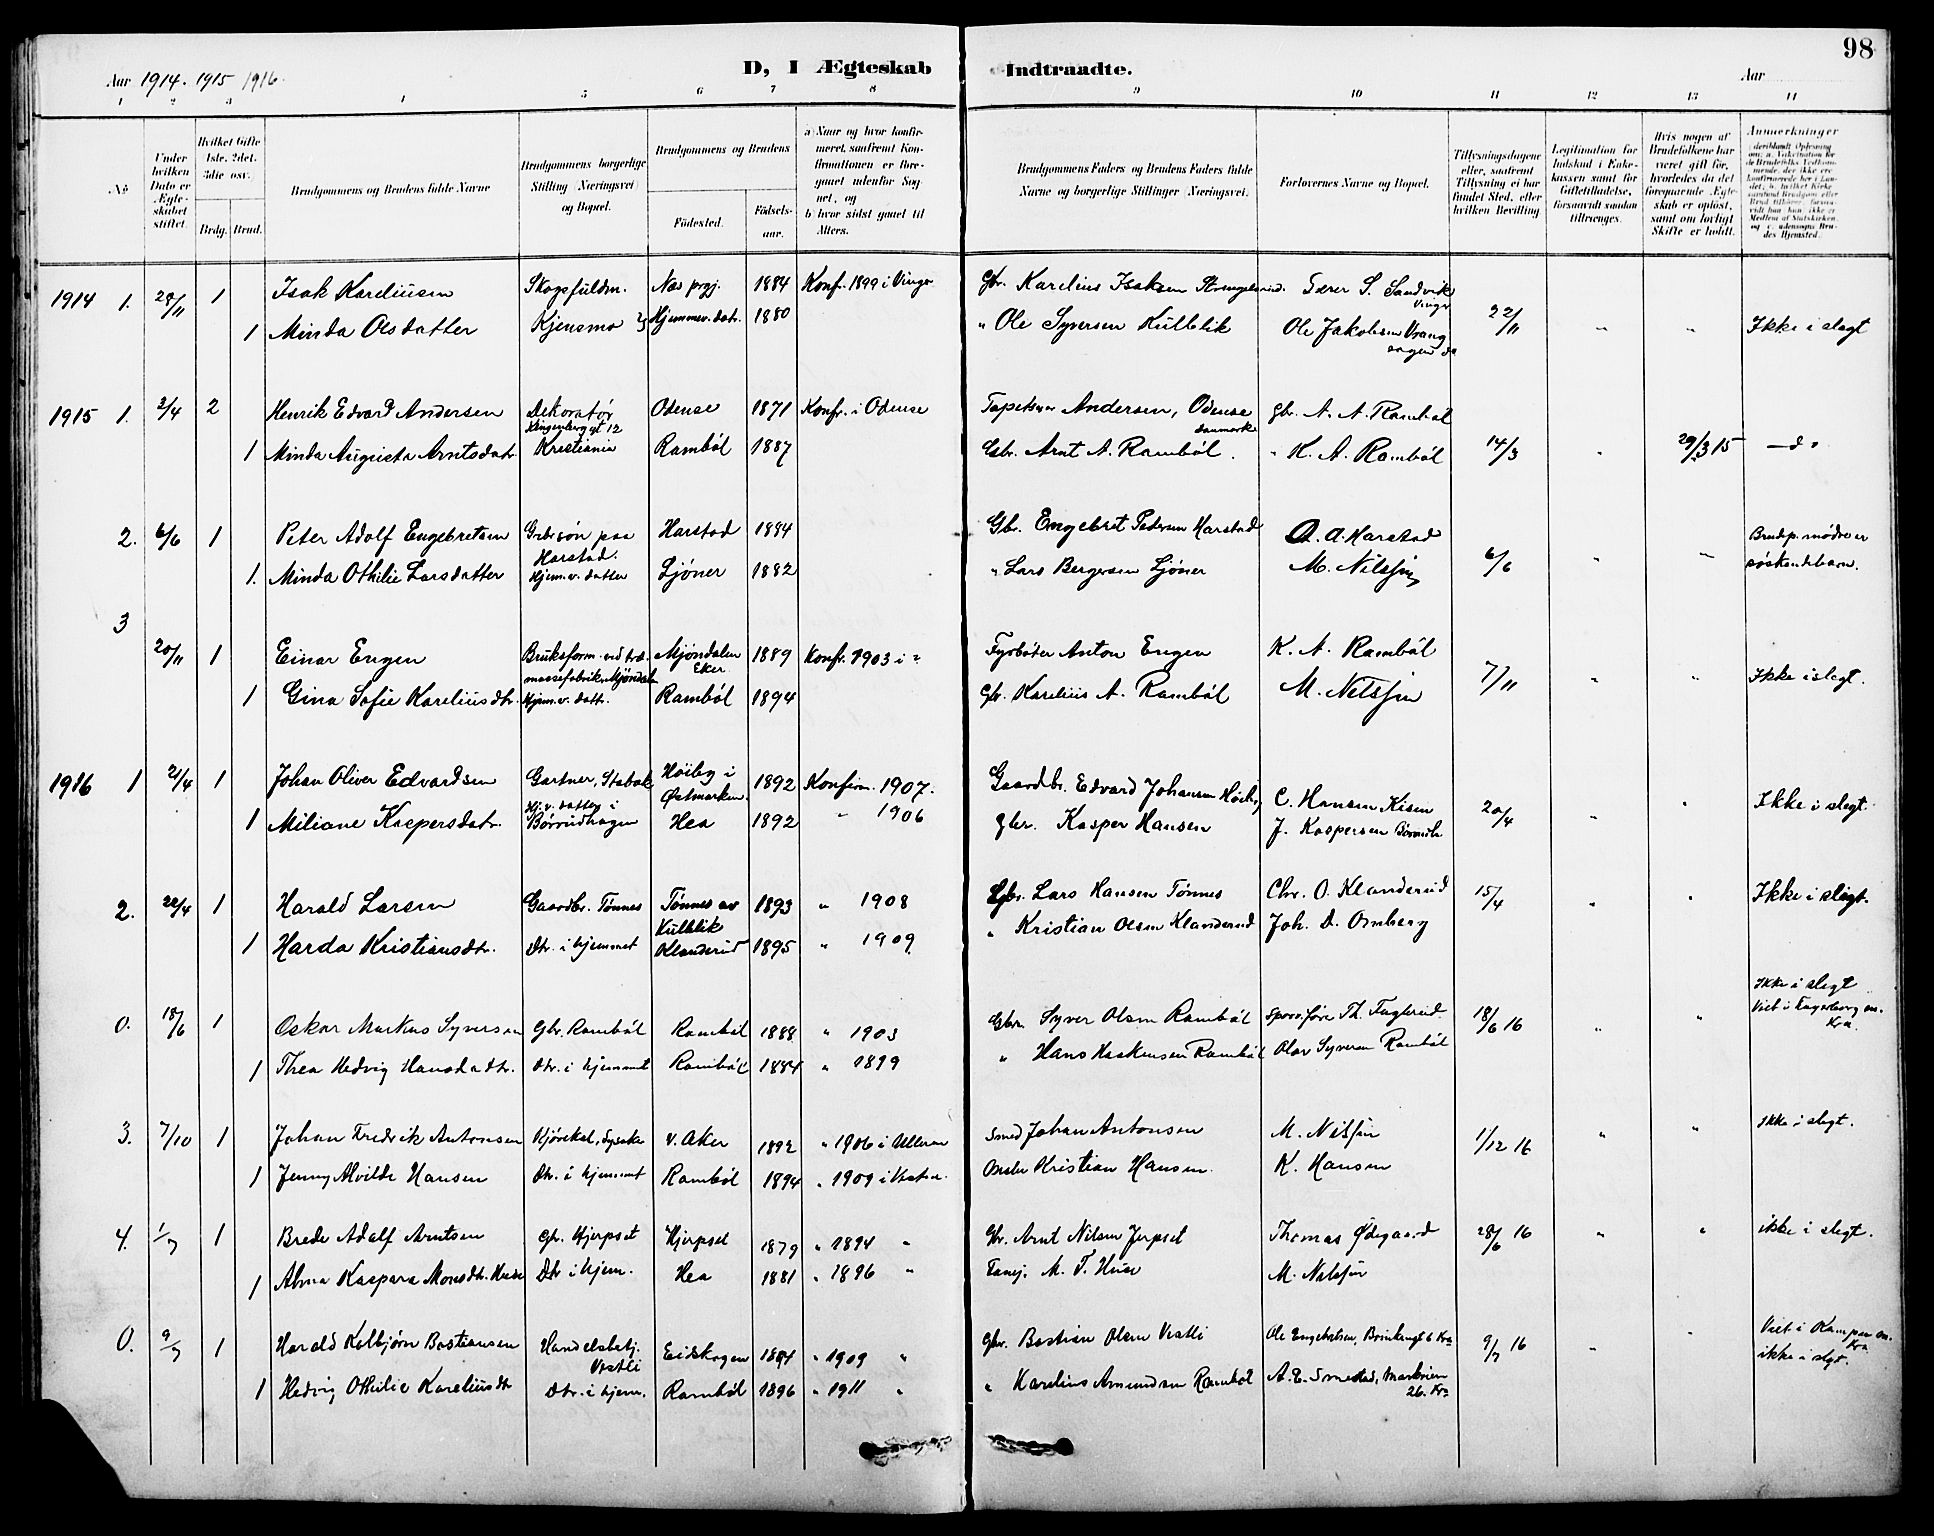 Aar 1914. 1915 1916.
D, I Ægteskab Indtraadte.
Aar
98
1 2 3 4 5 6 7 8 9 10 11 12 13 14
No
Under hvilken Dato er Ægteskabet stiftet.
Hvilket Gifte 1ste, 2det, 3die osv.
Brdg. Brud.
Brudgommens og Brudens fulde Navne
Brudgommens borgerlige Stilling (Næringsvei) og Bopæl.
Brudgommens og Brudens
Fødested. Fødselsaar.
a) Naar og hvor konfirmeret, saafremt Konfirmationen er foregaaet udenfor Sognet, og
b) hvor sidst gaaet til Alters.
Brudgommens Faders og Brudens Faders fulde Navne og borgerlige Stillinger (Næringsvei).
Forlovernes Navne og Bopæl.
Tillysningsdagene eller, saafremt Tillysning ei har fundet Sted, efter hvilken Bevilling
Legitimation for Indskud i Enkekassen samt for Giftetilladelse, forsaavidt saadan tiltrænges.
Hvis nogen af Brudefolkene har været gift før, hvorledes da det foregaaende Ægteskab er opløst, samt om lovligt Skifte er holdt.
Anmerkninger
1914 1. 28/11 1 Isak Kareliusen Skogsfuldm. Næs prgj. 1884 Konf. 1899 i Vinger Gbr. Karelius Isaksen Tærer S. Sandvik Vinger
1 Minda Olsdatter Kjensmo Hjemmev. datr. 1880 " Ole Syversen Kulblik Ole Jakobsen Vrangsagen 22/11 " " Ikke i slegt
1915 1. 3/4 2 Henrik Edvard Andersen Dekoratør Klingenberggt 12 Odense 1871 Konf. i Odense Tapetserer Andersen, Odense Danmark Gbr. A. A. Rambøl
1 Minda Augusta Arntsdatr. Kristiania Rambøl 1887 Gbr. Arnt A. Rambøl. " K. A. Rambøl 14/3 " 29/3 15 — d°
2. 6/6 1 Peter Adolf Engebretsen Grbrsøn paa Harstad. Harstad 1884 Gbr. Engebret Pedersen Harstad A. A. Harstad Brudp. mødre er
1. Minda Othilie Larsdatter Hjem.v. datter Ljøner 1882 " Lars Bergersen Ljøner M. Nilssen 6/6 " " søskendebarn.
3 20/11 1 Einar Engen Bruksform. ved træmassefabrik, Mjøndalen Mjøndalen Eker 1889 Konf. 1903 i " Fyrbøter Anton Engen K. A. Rambøl
1 Gina Sofie Kareliusdtr. Hjem.v. datr. Rambøl 1894 Gbr. Karelius A. Rambøl M. Nilssen 7/11 " " Ikke i slegt.
1916 1 21/4 1 Johan Oliver Edvardsen Gartner, Stabæk Høiby i Østmarken. 1892 Konfirm. 1907. Gaardbr. Edvard Johansen Høiby C. Hansen Kisen
1 Miliane Kaspersdatr. Hj.v. datter i Børrudhagen Hea 1892 " 1906 gbr. Kasper Hansen J. Kaspersen 20/4 " " Ikke i slegt.
2. 22/4 1 Harald Larsen Gaardbr. Tønnes Tønnes av Kulblik 1893 " 1908 Gbr. Lars Hansen Tønnes Chr. O. Klanderud 15/4 " " Ikke i slegt.
1 Harda Kristiansdtr. Dtr. i hjemmet Klanderud 1895 " 1909 " Kristian Olsen Klanderud Joh. D. Omberg
0. 18/6 1 Oskar Markus Syversen Gbr. Rambøl Rambøl 1888 " 1903 Gbr. Syver Olsen Rambøl Sporv.fører Th. Faglerud 18/6 16 " " Ikke i slegt Viet i Fagerborg m. Kra.
1 Thea Hedvig Hansdadtr. Dtr. i hjemmet Rambøl 1884 " 1899 " Hans Haakensen Rambøl Olav Syversen Rambøl
3. 7/10 1 Johan Fredrik Antonsen V. Aker 1892 " 1906 i Ullern Smed Johan Antonsen M. Nilssen 1/12 16 " " Ikke i slegt.
1 Jenny Alvilde Hansen Dtr. i hjemmet Rambøl 1894 " 1909 i Kristian Hansen. K. Hansen
4. 1/7 1 Brede Adolf Arntsen Gbr. Hjerpset Hjerpset 1879 " 1894 " Gbr. Arnt Nilsen Jerpset Thomas Ødegaard 28/6 16 " " ikke i slegt.
1 Alma Kaspara Monsdtr. Huse Dtr. i hjem. Hea 1881 " 1896 " M. T. Huse M. Nilssen
0. 9/7 1 Harald Kolbjørn Bastiansen Handelsbetj. Vestli Eidskogen 1894 " 1909 " Gbr. Bastian Olsen Vestli Ole Engebretsen, Brinkengt 6 Kra 9/7 16 " " Viet i Kampen m. Kra ikke i slgt.
1 Hedvig Othilie Kareliusdtr Dtr. i hjem. Rambøl 1896 " 1911 " " Karelius Amundsen Rambøl A. E. Smestad, Markveien 26. Kra